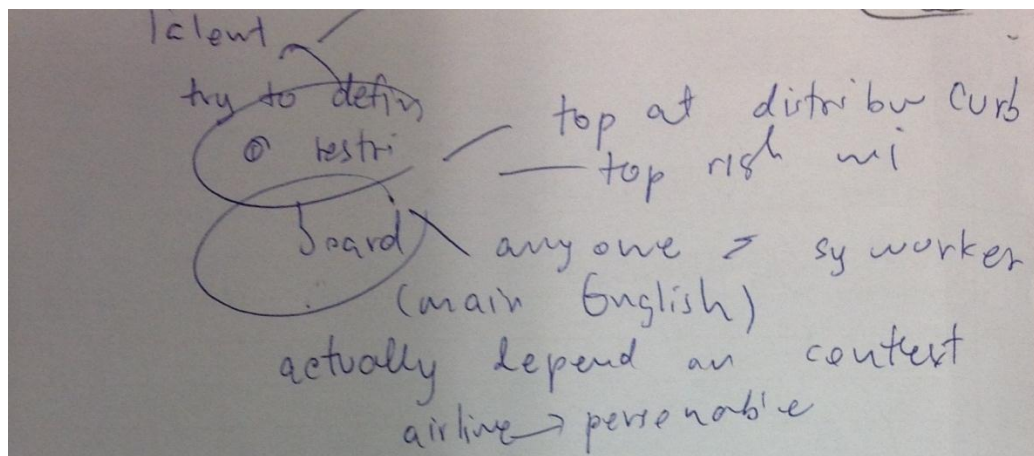 Talent
try to defin
restri
top at distribu Curb
top risk
board
anyone > sy worker
(main English)
actually depend on context
airline → personable